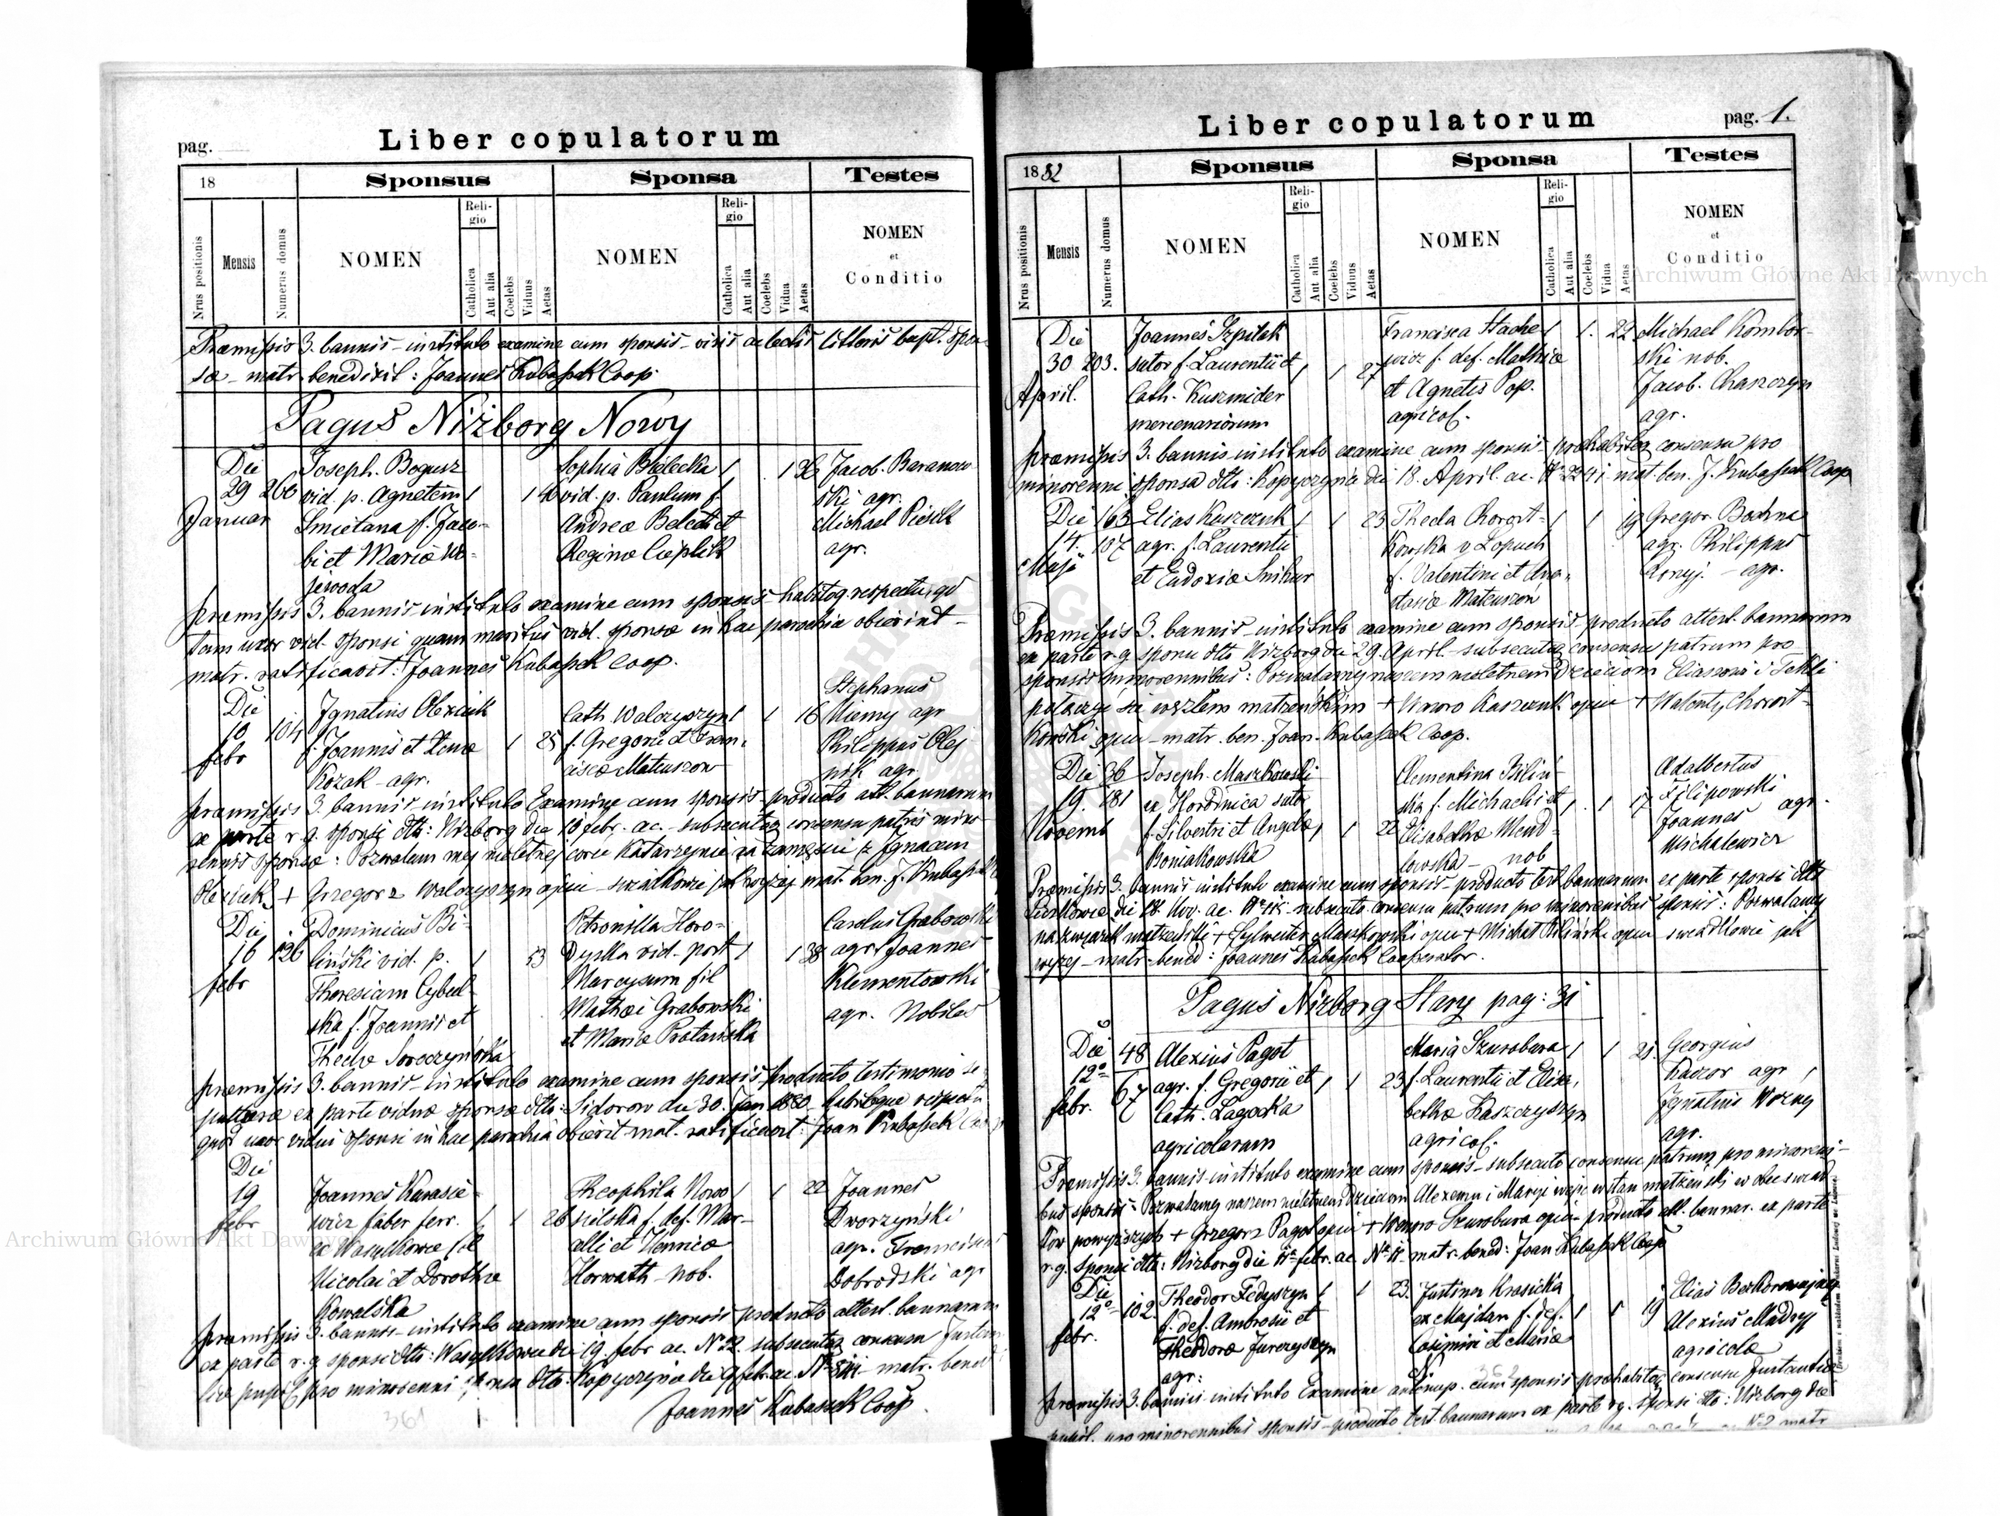 pag.
Liber copulatorum
18
Sponsus
Sponsa
Testes
Nrus positionis
Mensis
Numerus domus
NOMEN
Religio
Catholica
Aut alia
Coelebs
Viduus
Aetas
NOMEN
Religio
Catholica
Aut alia
Coelebs
Vidua
Aetas
NOMEN
et
Conditio
Præmissis 3. bannis – instituto examine cum sponsis – visis ac lectis litteris bapt. spon-
sæ – matr. benedixit: Joannes Kubassek Coop.
Pagus Niżborg Nowy
Die 29 Januar
266
Joseph. Bogusz
vid. p. Agnetem
Smietana f. Jaco-
bi et Mariæ Wo-
jewoda
Sophia Bielecka
vid. p. Paulum f.
Andreæ Belecki et
Reginæ Cieplik
36
Jacob. Baranow-
ski agr.
Michael
agr.
præmissis 3. bannis – instituto examine cum sponsis – habitoq respectu, qd
tam uxor vid. sponsi quam maritus vid. sponsæ in hac parochia obierint –
matr. ratificavit: Joannes Kubassek Coop.
Die 10 febr
104
Ignatius Olexiuk
f. Joannis et
Kozak – agr.
1 25
Cath. Walczyszyn
f. Gregorii et Fran-
ciscæ Mateuszow
1 1 16
Stephanus
Niemy agr
Philippus Olej
nik agr
præmissis 3. bannis – instituto Examine cum sponsis – producto att. bannarum
ex parte r. g. sponsi dtto: Nizborg die 10 febr. ac. – subsecutoq consensu patris mino-
rennis sponsæ: Pozwalam mej nieletniej corce Katarzynie na zamęscie z Ignacem
Olexiuk + Grzegorz Walczyszyn ojciec – świadkowie jak wyzej mat. ben. J. Kubassek
Die 16 febr
126
Dominicus Bi-
liński vid. p.
Theresiam Cybul-
ska f. Joannis et
Theclæ Soroczyńska
1 53
Petronilla Horo-
Dyska vid. post
Marcysum fil
Mathæi Grabowski
et Mariæ
1 1 38
Carolus Grabowski
agr Joannes
Klementowski
agr. Nobiles
præmissis 3. bannis – instituto examine cum sponsis – producto testimonio se-
pulturæ ex parte viduæ sponsæ dtto: Sidorow die 30. Jan 1880 – habitoque respectu
quod uxor vidui sponsi in hac parochia obierit – mat. ratificavit: Joan Kubassek
Die 19 febr
Joannes Karasie-
wicz faber ferr.
ex Wasylkowce fil
Nicolai et Dorothæ
Kowalska
1 1 26
Theophila Nowo
sielska f. def. Mar-
celli et
Horwath – nob.
1 1 22
Joannes
Dworzyński
agr. Franciscus
Dobrodski agr
præmissis 3. bannis – instituto examine cum sponsis producto attest. bannarum
ex parte r. g. sponsi dtto: Wasylkowce die 19. febr ac. No 22. subsecutoq consensu
pro minorenni sponsa dtto: Kopyczyńce die 9 febr. ac. matr. bened
Joannes Kubassek Coop.
361
Liber copulatorum
pag. 1.
1882
Sponsus
Sponsa
Testes
Nrus positionis
Mensis
Numerus domus
NOMEN
Religio
Catholica
Aut alia
Coelebs
Viduus
Aetas
NOMEN
Religio
Catholica
Aut alia
Coelebs
Vidua
Aetas
NOMEN
et
Conditio
Die 30 April.
203.
Joannes Szpilak
sutor f. Laurentii et
Cath. Kuszmider
mercenariorum
1 1 27
Francisca Stache
wicz f. def. Mathiæ
et Agnetis Pop.
agricol.
1 1. 22
Michael Kombor-
ski nob.
Jacob. Charszczyn
agr.
præmissis 3. bannis – instituto examine cum sponsis præhabitoq consensu pro
minorenni sponsa dtto: Kopyczyńce die 18. April. ac. mat. ben. J. Kubassek Coop
Die 14. Maji
163
107
Elias Kaszczuk
agr. f. Laurentii
et Eudoxiæ Snihur
1 1 23
Thecla Chorost-
kowska v Lopuch
f. Valentini et Ana-
stasiæ Mateuszow
1 1 19
Gregor. Bochna
agr. Philippus
agr.
Præmissis 3. bannis – instituto examine cum sponsis, producto attest. bannarum
ex parte r. g. sponsi dtto Nizborg die 29. April – subsecutoq consensu patrum pro
sponsis minorennibus: Pozwalamy naszem nieletniem Dzieciom Eliaszowi i Tekli
połączyć się węzłem małżeńskim + Wawro Kaszczuk ojciec + Walenty Chorost-
kowski ojciec – matr. ben. Joan. Kubassek Coop.
Die 19. Novemb
36
181
Joseph. Maszkowski
ex Hordinica sutor
f. Silvestri et Angelæ
Boniakowska
1 1 22
Clementina Biliń-
ska f. Michaelis et
Elisabethæ Mend-
lowska – nob
1. 1 17
Adalbertus
Filipowski
Joannes agr.
Michalewicz
Præmissis 3. bannis instituto examine cum sponsis – producto test. bannarum ex parte sponsi dtto
die 18. Nov. ac. subsecuto consensu patrum pro minorennibus sponsis: Pozwalamy
na związek małżeński + Sylwester Maszkowski ojciec + Michał Biliński ojciec świadkowie jak
wyżej – matr. bened: Joannes Kubassek Cooperator.
Pagus Niżborg Stary pag: 31
Die 12o febr.
48
67
Alexius Pagot
agr. f. Gregorii et
Cath. Zagocka
agricolarum
1 1 23
Maria Szurobura
f. Laurentii et Elisa-
bethæ Kaszczyszyn
agricol.
1 1 21
Georgius
Kaczor agr
Ignatius Wozny
agr.
Præmissis 3. bannis – instituto examine cum sponsis – subsecuto consensu patrum pro minorenni-
bus sponsis: Pozwalamy naszem nieletniem Dzieciom Alexemu i Maryi wejść w stan małżeński w obec świad-
ków powyższych + Grzegorz Pagot ojciec + Wawro Szurobura ojciec – producto att. bannar. ex parte
r. g. sponsi dtto: Nizborg die febr. ac. matr. bened: Joan Kubassek Coop
Die 12o febr.
102.
Theodor Fedyszyn
f. def. Ambrosii et
Theodoræ Jurczyszyn
agr:
1 1 23.
Justina Krasicka
ex Majdan f. def.
Casimiri et Mariæ
1 1 19
Elias
Alexius Mądry
agricolæ
362
præmissis 3. bannis instituto Examine cum sponsis præhabitoq consensu
pupil. pro minorennibus sponsis – producto test. bannarum ex parte rg. sponsi dtto: Nizborg die
No 2 matr
Archiwum Główne Akt Dawnych
Archiwum Główne Akt Dawnych